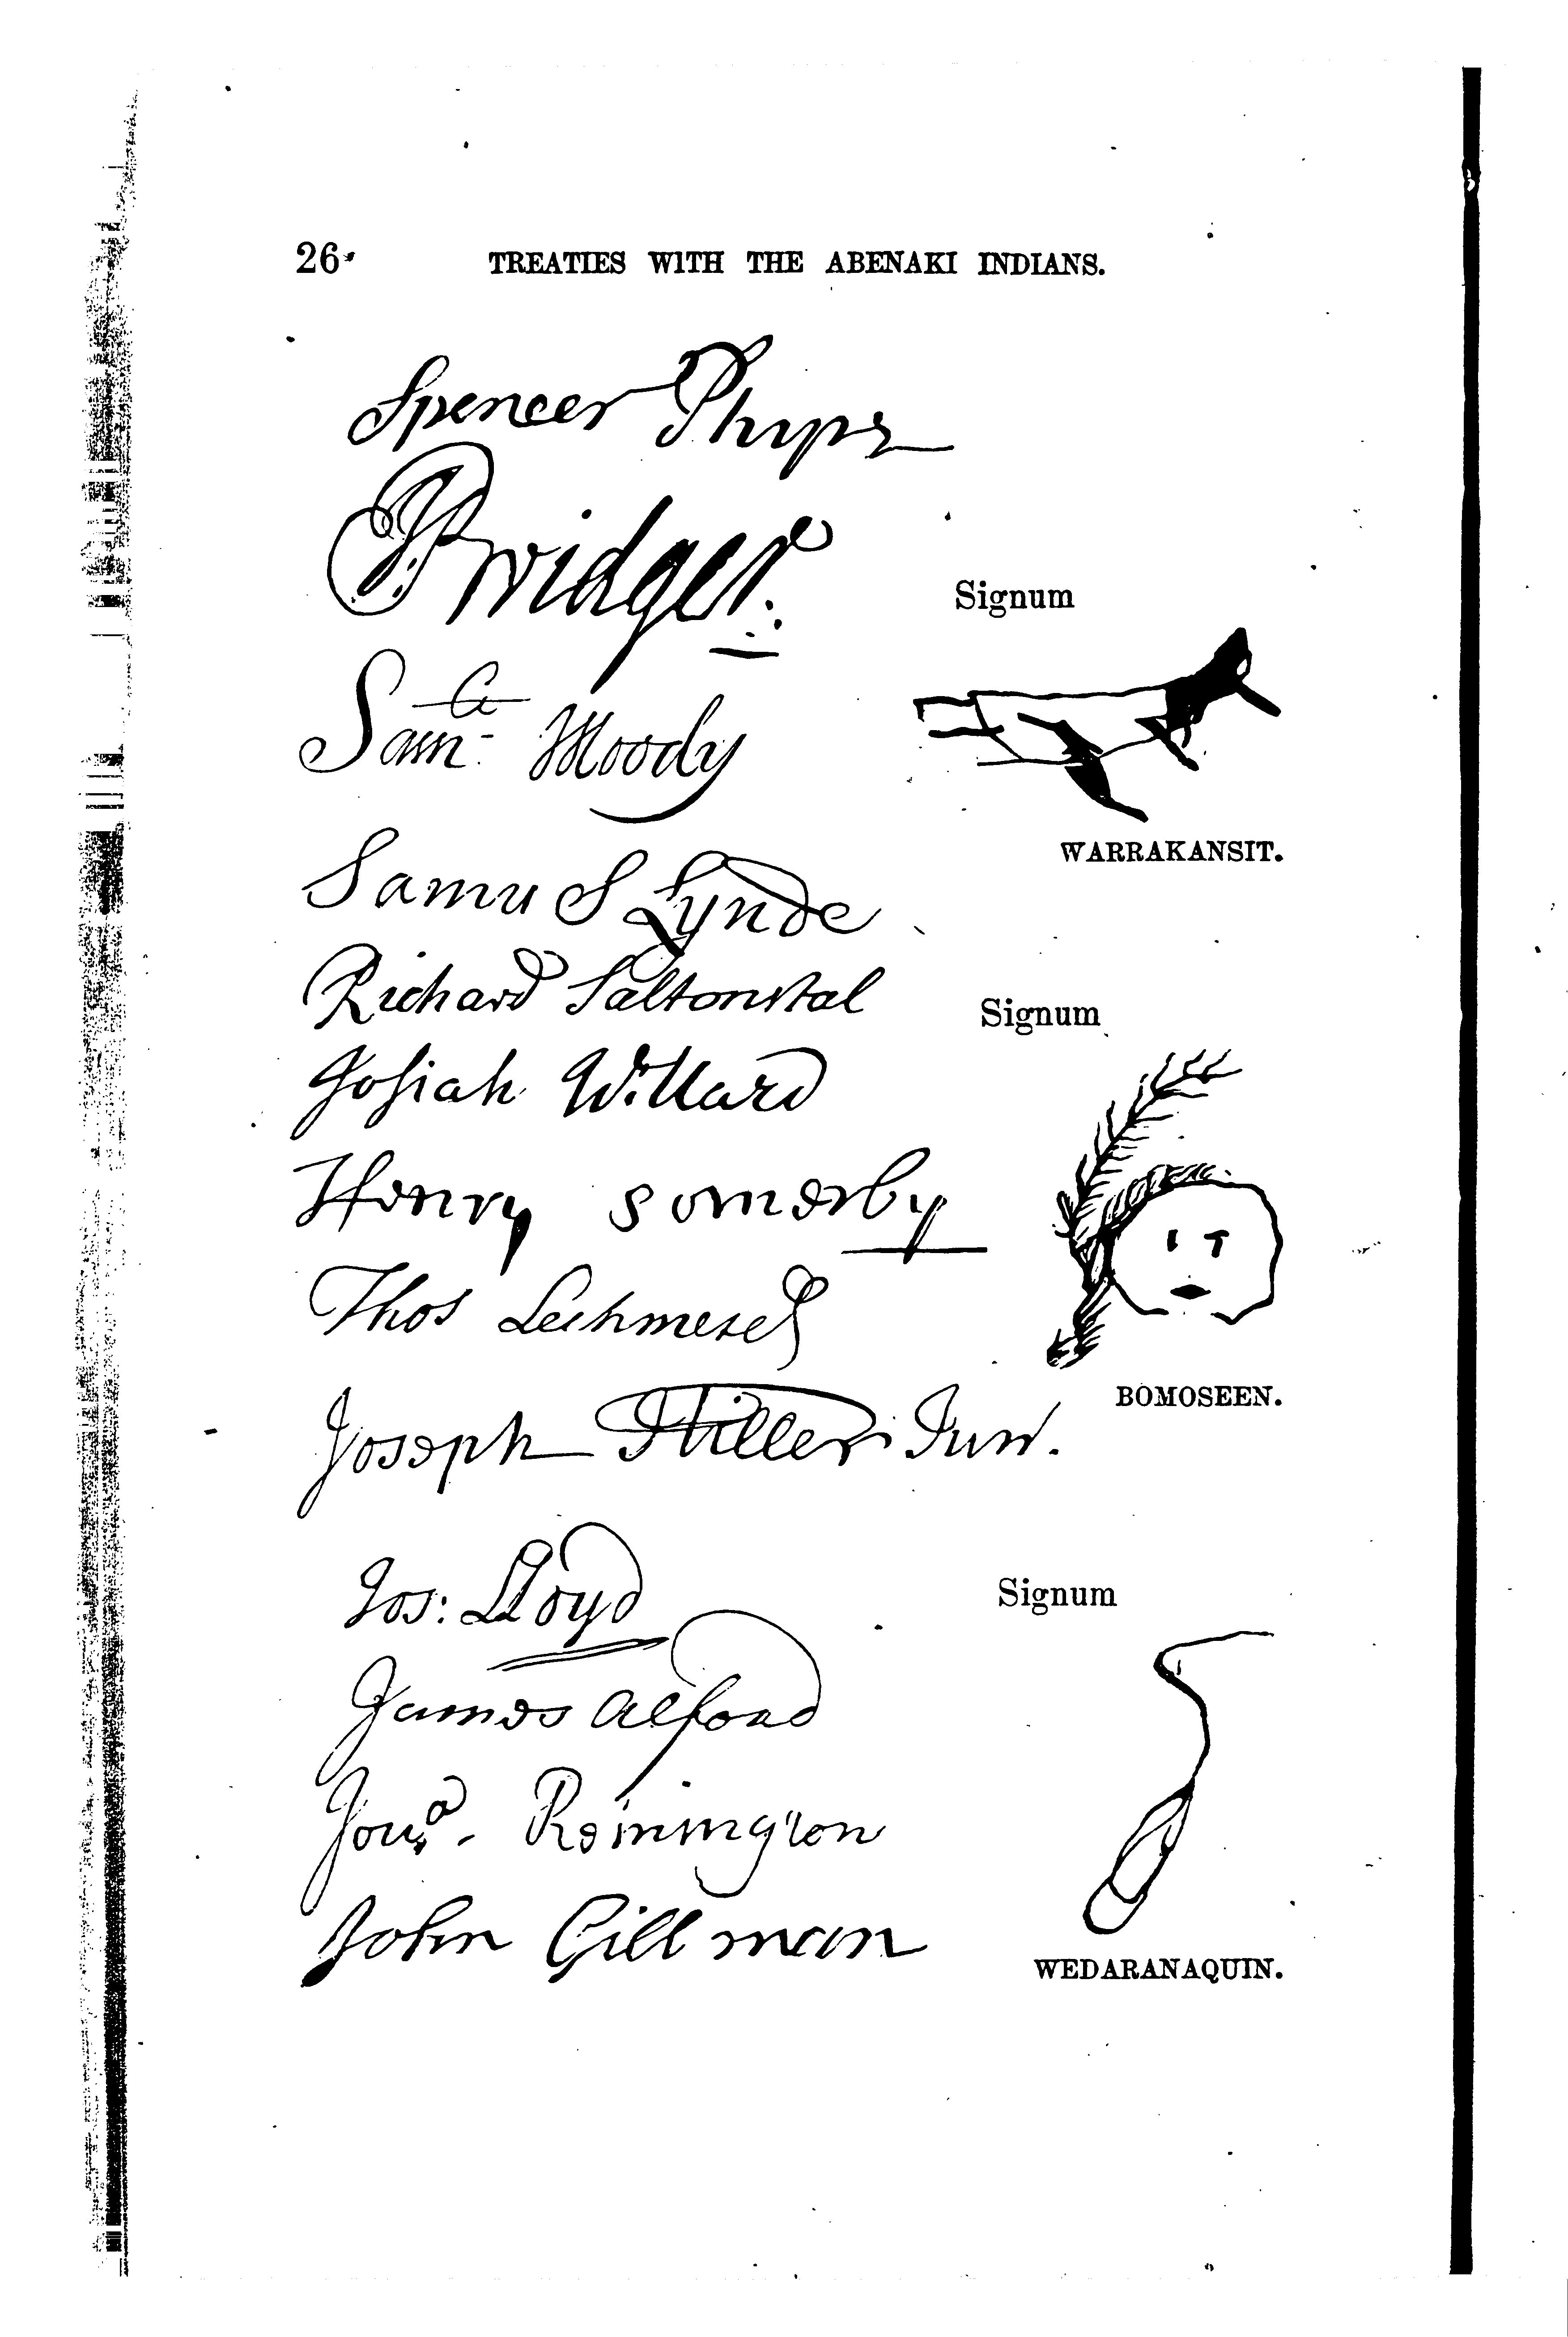 26
TREATIES WITH THE ABENAKI INDIANS.
Spencer Phips
JBridger.
Signum
Saml Moody
WARRAKANSIT.
Samuel Lynde
Richard Saltonstal
Signum
Josiah Willard
Henry Somerby
Thos Lechmere
BOMOSEEN.
Joseph Hiller Junr.
Jos: Lloyd
Signum
James Alford
Jona. Remington
John Gillman
WEDARANAQUIN.